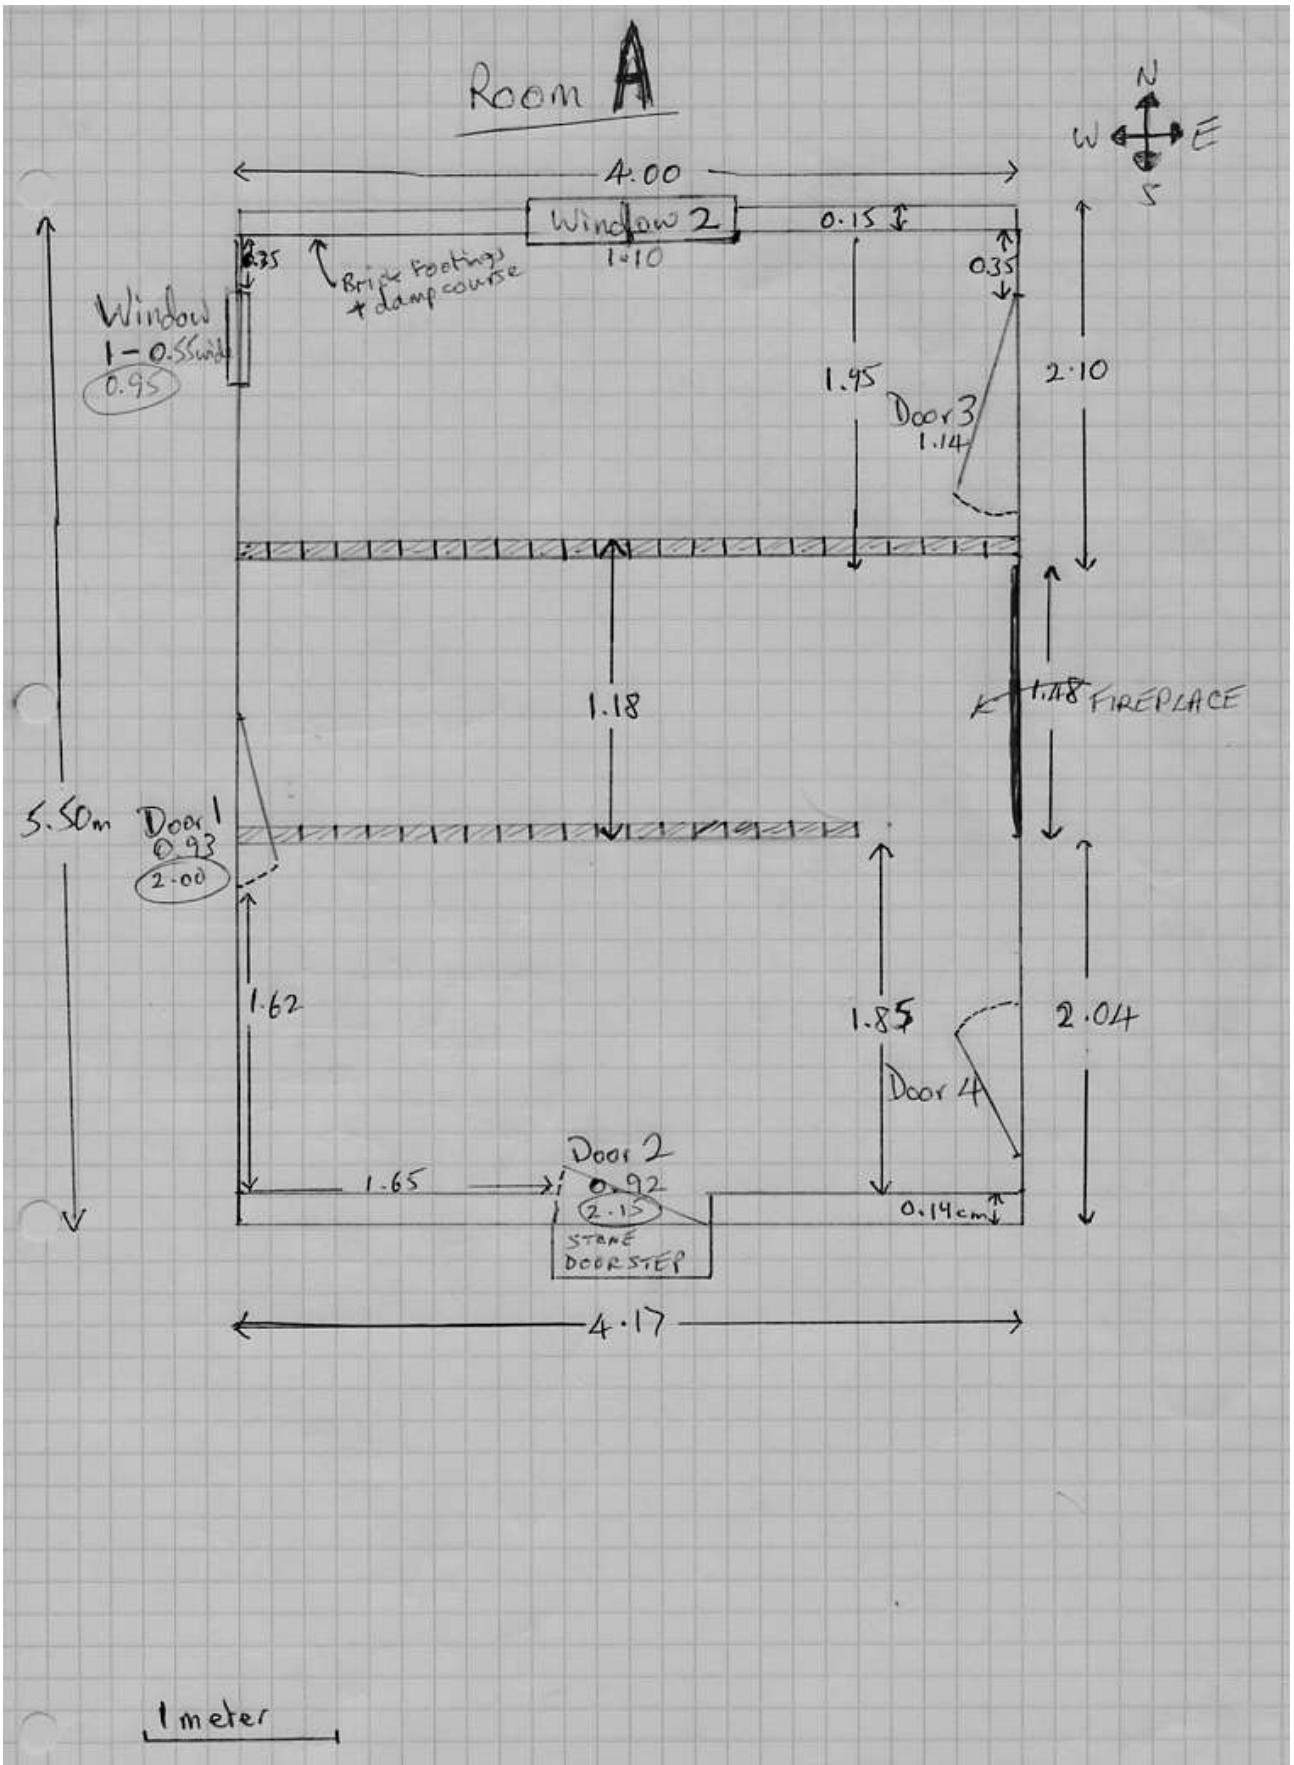 Room A
N
W E
S
4.00
Window 2
1.10
0.15
0.35
0.35
Brick Footings
+ damp course
Window
1 - 0.55wide
0.95
1.95
2.10
Door 3
1.14
1.18
1.48 FIREPLACE
5.50m
Door 1
0.93
2.00
1.62
1.85
2.04
Door 4
Door 2
1.65
0.92
2.15
0.14cm
STONE
DOORSTEP
4.17
1 meter